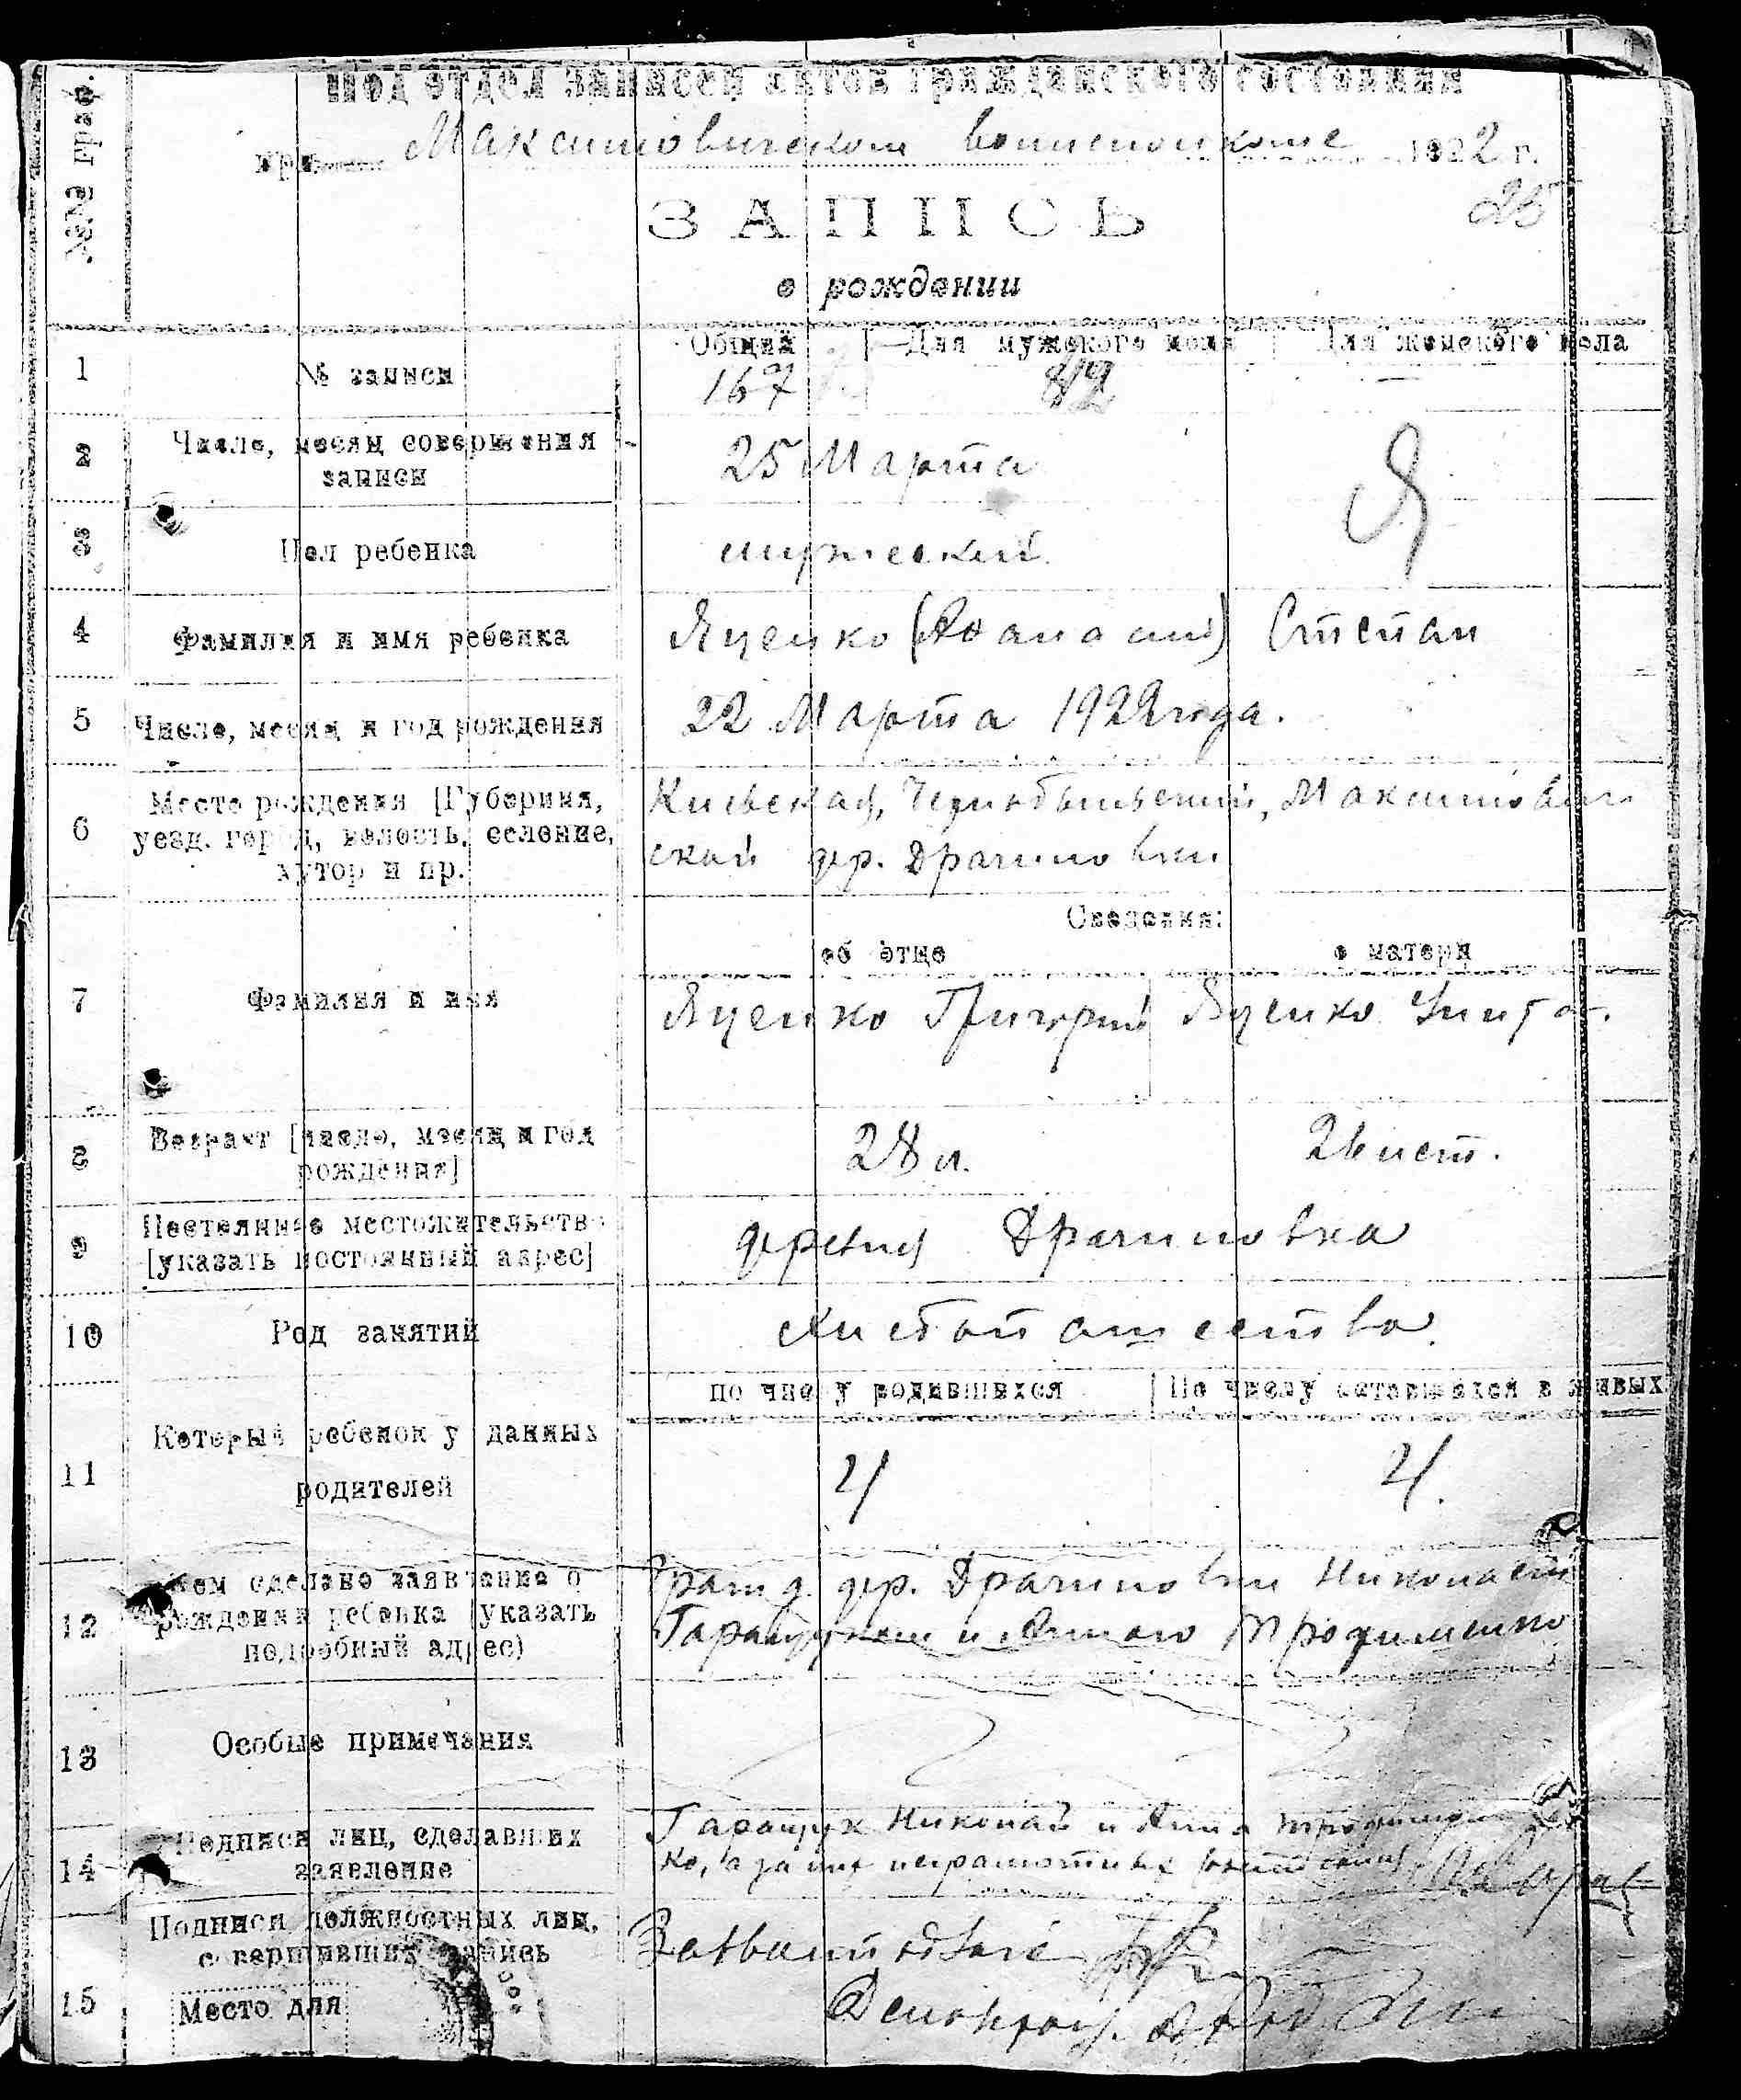 №№ граф.
Под отдел записей актов гражданского состояния
при Максимовичском волисполкоме 1922 г.
25
ЗАПИСЬ
о рождении
Общий Для мужского пола Для женского пола
1 № записи 167 82 —
2 Число, месяц совершения записи 25 Марта
Я
3 Пол ребенка мужеский.
4 Фамилия и имя ребенка Яценко (Афанасий) Степан
5 Число, месяц и год рождения 22 Марта 1922 года.
6 Место рождения [Губерния, Киевская, Чернобыльский, Максимович
уезд. город, волость, селение, ской дер. Драчиловки
хутор и пр.
Сведения:
об отце о матери
7 Фамилия и имя Яценко Григорий Яценко
8 Возраст [число, месяц и год рождения] 28 л. 26 лет.
9 Постоянное местожительство деревня Драчиловка
[указать постоянный адрес]
10 Род занятий Хлебопашество.
по числу родившихся По числу оставшихся в живых
11 Который ребенок у данных 4 4.
родителей
12 Кем сделано заявление о Гражд. дер. Драчиловки Николаем
рождении ребенка (указать Гаращуком и Анною Трофименко
подробный адрес)
13 Особые примечания
14 Подписи лиц, сделавших Гаращук Николай и Анна Трофимен
заявление ко, а за них неграмотных
Подписи должностных лиц,
совершивших запись
15 Место для Делопроиз.